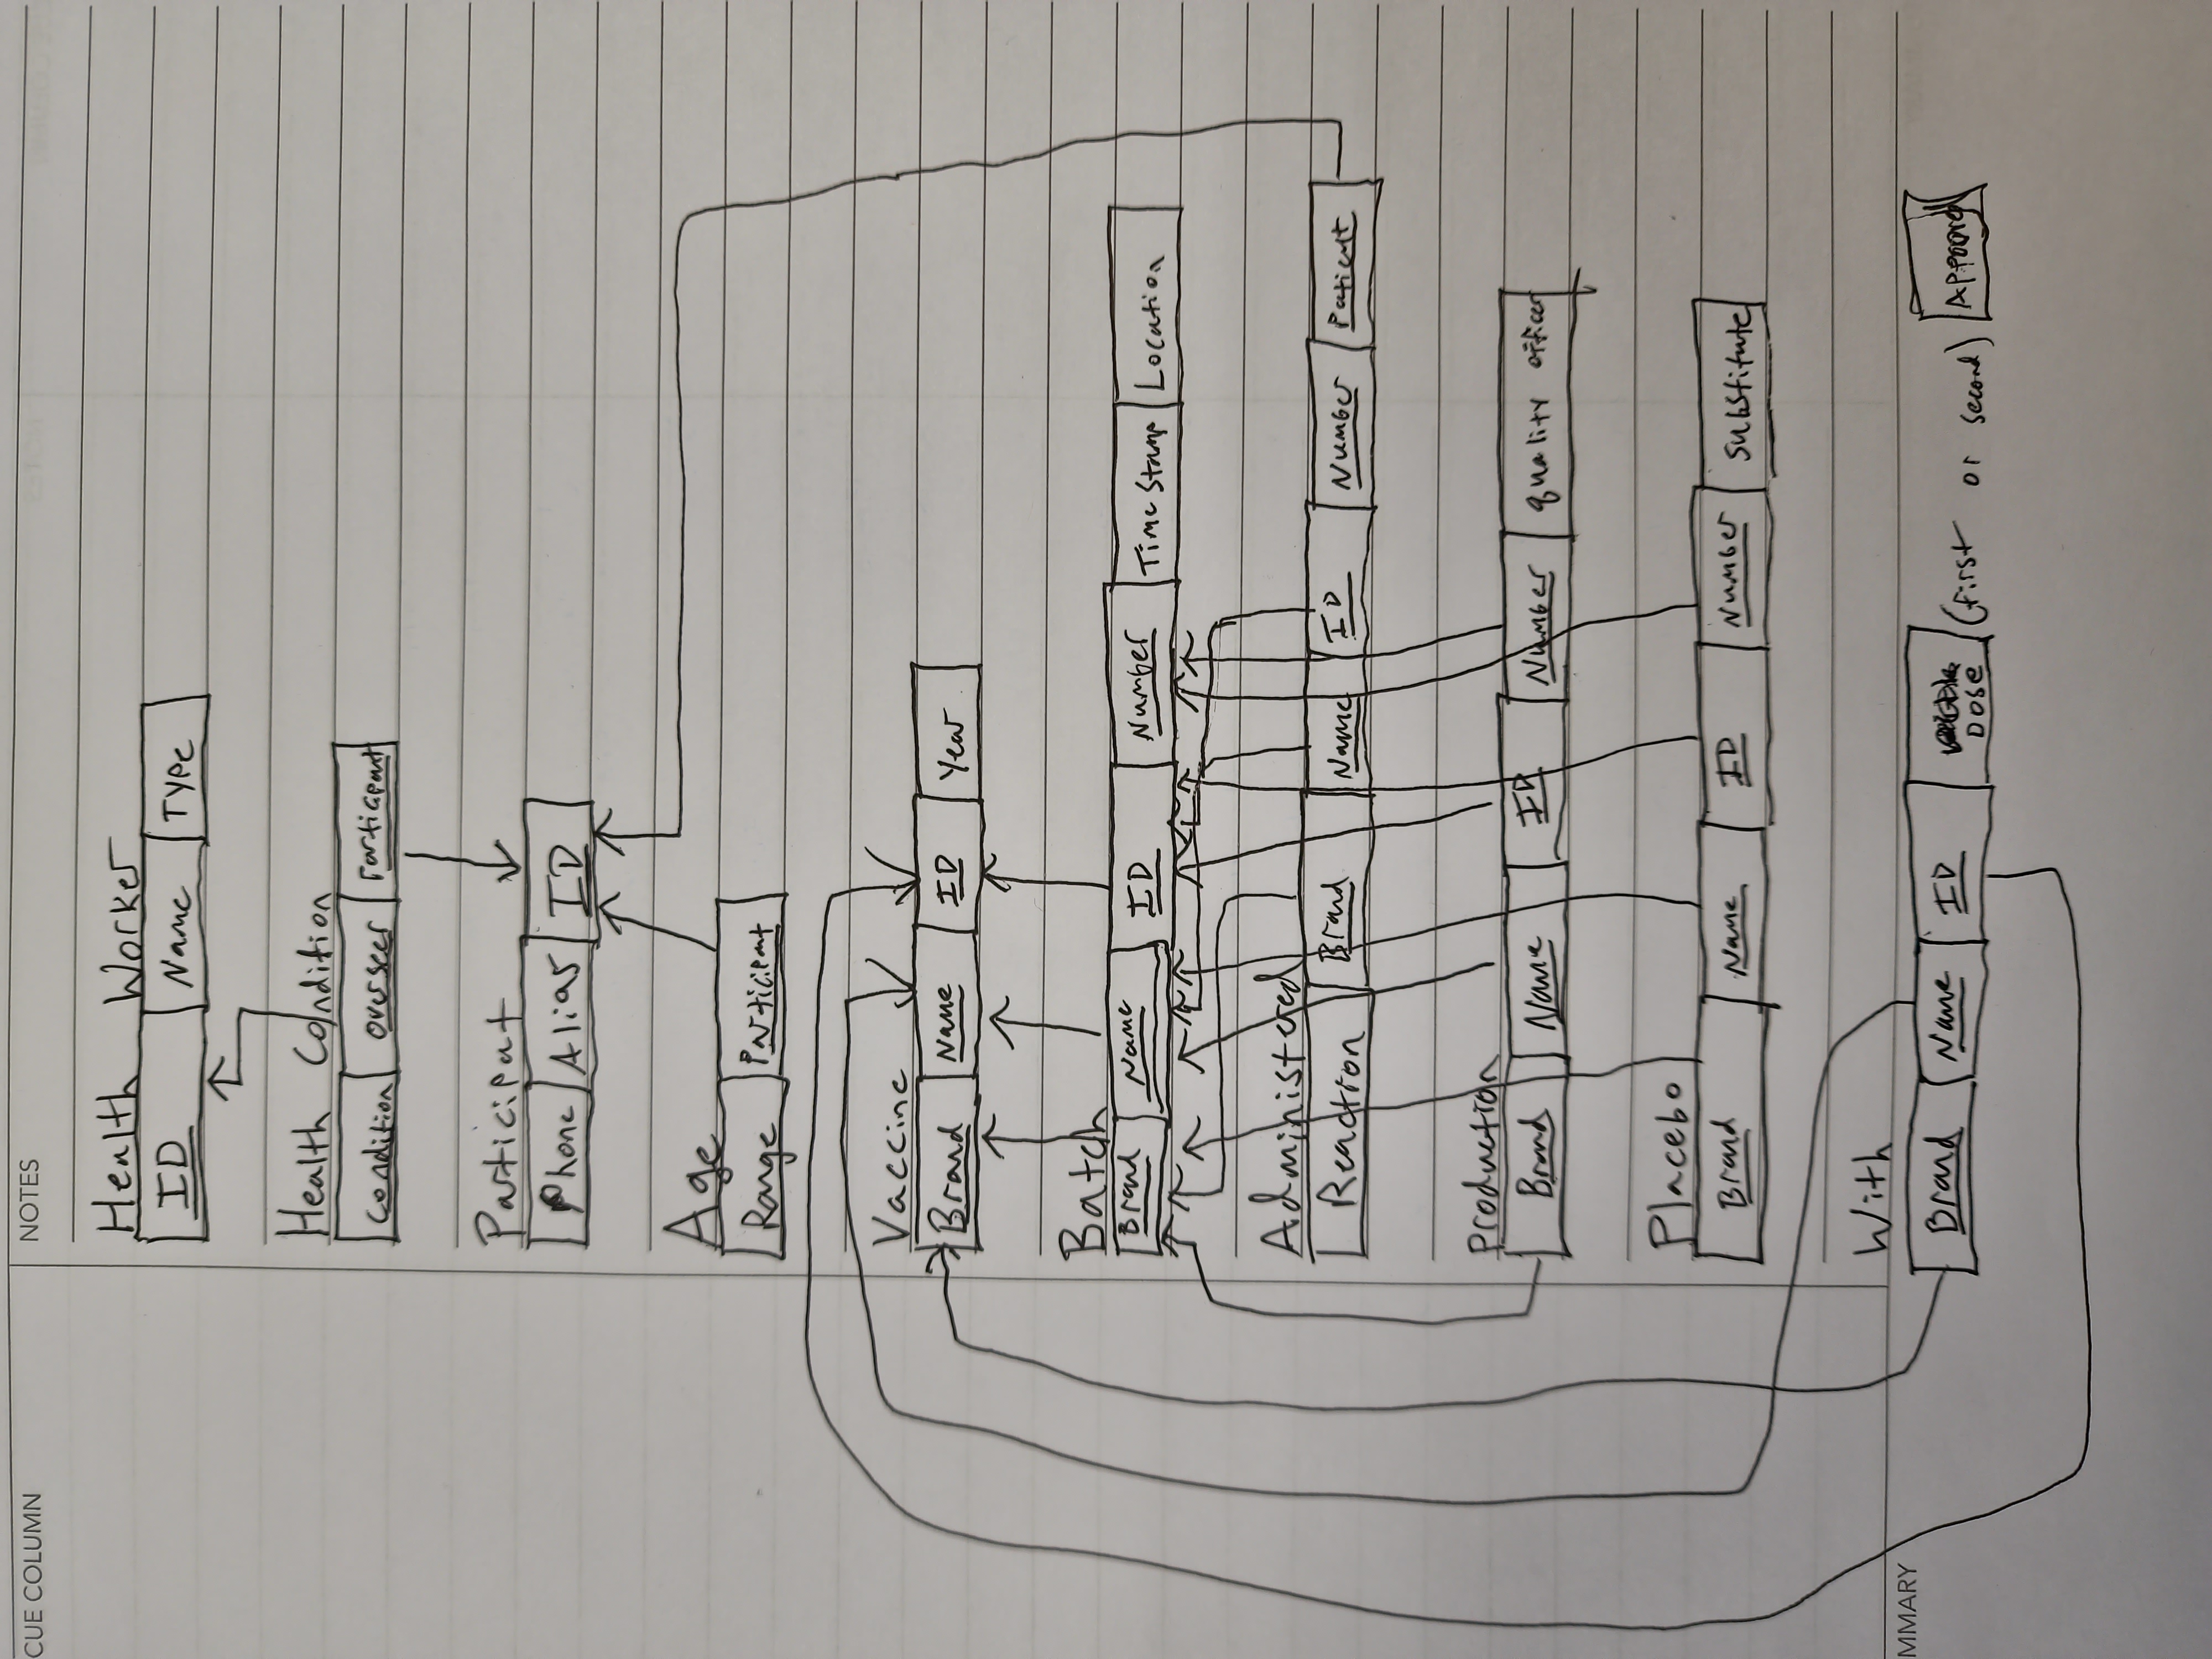 CUE COLUMN
NOTES
Health Worker
ID Name Type
Health Condition
Condition Overseer Participant
Participat
Phone Alias ID
Age
Range Participant
Vaccine
Brand Name ID Year
Batch
Brand Name ID Number TimeStamp Location
Administered
Reaction Brand Name ID Number Patient
Production
Brand Name ID Number quality officer
Placebo
Brand Name ID Number Substitute
With
MMARY
Brand Name ID DOSE (first or second)